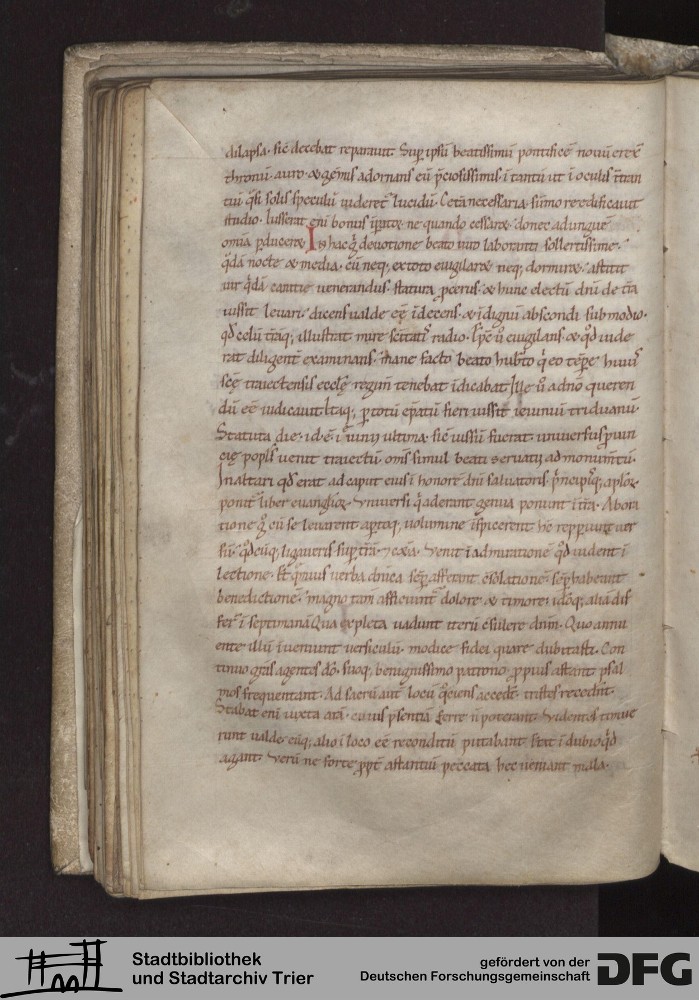 dilapsa. sic̄ decebat reparauit. Sup̄ ipsū beatissimū pontificē nouū erexᷓ
thronū. auro ⁊ gēmis adornans eū p̄ciosissimis. ī tantū ut ī oculis ītran
tiū q̄si solis speculū uideret᷑ lucidū. Cet̄a necessaria sūmo reedificauit
studio. Iusserat enī bonus īpator ne quando cessaret donec ad unguē
om̄ia p̄duceret. In hac g̊ deuotione beato uiro laboranti sollertissime.
q̄dā nocte ⁊ media. cū neq; ex toto euigilaret neq; dormiret. astitit
uir q̄dā canitie uenerandus. statura p̄cerus. ⁊ hunc electū dn̄i de t̄ra
iussit leuari. dicens ualde eē īdecens. ⁊ īdignū abscondi sub modio.
qđ celū t̄raq; illustrat mire sc̄itatis radio. Ip̄e ū euigilans ⁊ qđ uide
rat diligent̄ examinans. mane facto beato hub̄to q̄ eo tēpe huius
scē traiectensis eccłe regim̄ tenebat īdicabat. Ille ū a dn̄o queren
dū eē iudicauit. Itaq; p̄ totū ep̄atū fieri iussit ieiuniū triduanū.
Statuta die. id ē. iunii ultima. sic̄ iussū fuerat. uniuersus puin
cię popl̄s uenit traiectū. om̄s simul beati seruatii ad monum̄tū.
In altari qđ erat ad caput eius ī honore dn̄i saluatoris. p̄ncipūq; aplōꝝ
ponit᷑ liber euangliōꝝ. Vniuersi q̄ aderant genua ponunt ī t̄ra. Ab ora
tione g̊ cū se leuarent aptoq; uolumine īspicerent hc̄ reppunt uer
sū. Qđcūq; ligaueris sup̄ t̄rā. ⁊ cx̄a. Venit ī admiratione qđ uident ī
lectione. Et q̄muis uerba dn̄ica semp̄ afferant c̄solationē. semp̄ habeant
benedictionē. magno tam̄ afficiunt᷑ dolore ⁊ timore. idoq; aliā dif
fert᷑ ī septimanā. Qua expleta uadunt iterū c̄sulere dn̄m. Quo annu
ente illū īueniunt uersiculū. modice fidei quare dubitasti. Con
tinuo gr̄as agentes dō. suoq; benignissimo patrono p̄pius astant psal
mos frequentant. Ad sacrū aut̄ locū q̄ciens accedūt. tristes recedūt.
Stabat enī iuxta arā. cuius p̄sentiā ferre n̄ poterant. Videntes timue
runt ualde eūq; alio ī loco eē reconditū putabant. Stāt ī dubio qđ
agant. Verū ne forte ppt̄ astantiū peccata hec ueniant mala.
Stadtbibliothek
und Stadtarchiv Trier
gefördert von der
Deutschen Forschungsgemeinschaft
DFG